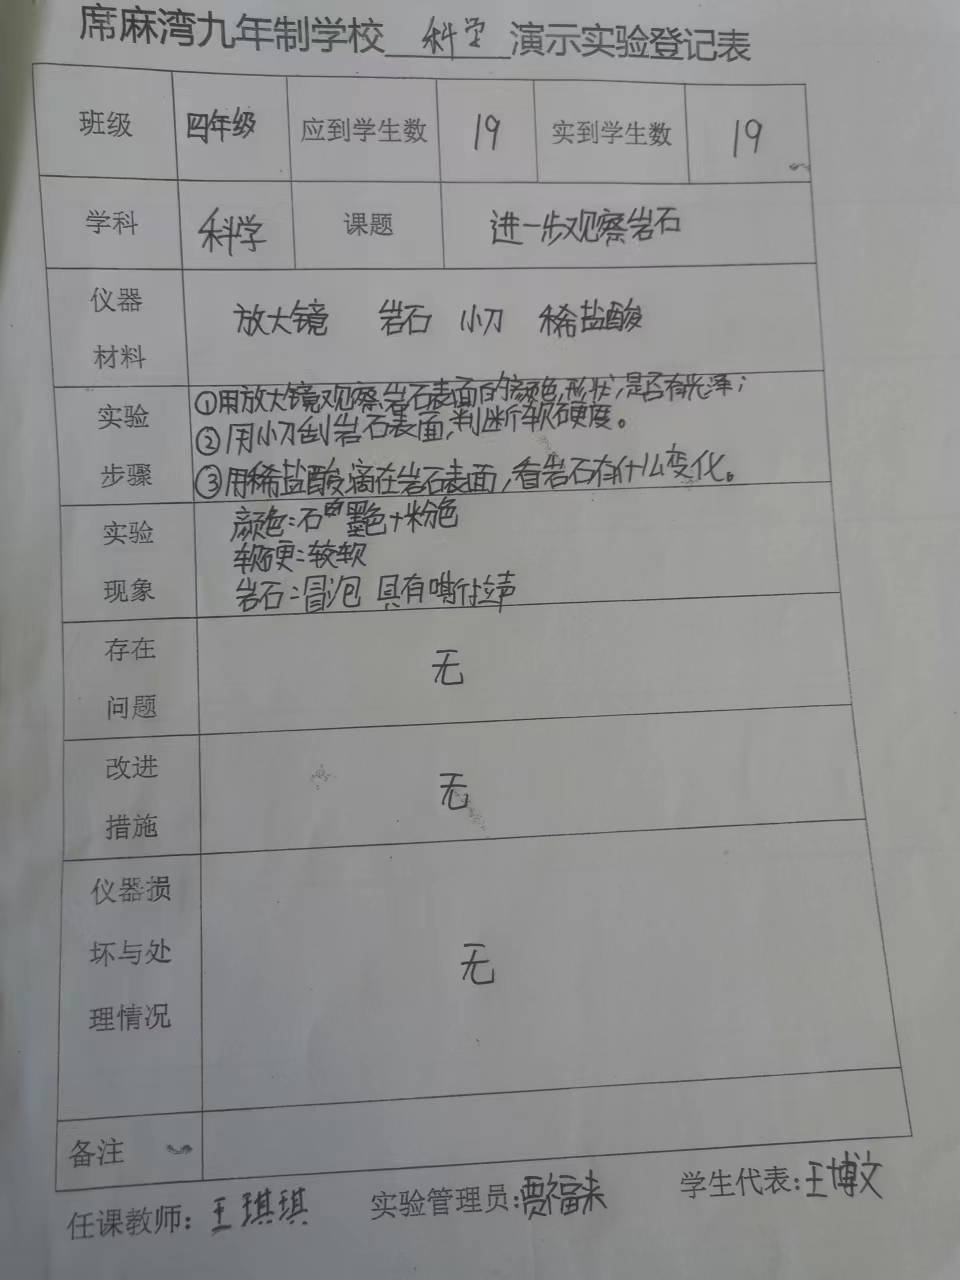 席麻湾九年制学校 科学 演示实验登记表
班级 四年级 应到学生数 19 实到学生数 19
学科 科学 课题 进一步观察岩石
仪器
材料
放大镜 岩石 小刀 稀盐酸
实验
步骤
①用放大镜观察岩石表面的颜色,形状,是否有光泽;
②用小刀刮岩石表面,判断软硬度。
③用稀盐酸滴在岩石表面,看岩石有什么变化。
实验
现象
颜色:石墨色+粉色
软硬:较软
岩石:冒泡 具有嘶拉声
存在
问题
无
改进
措施
无
仪器损
坏与处
理情况
无
备注
任课教师:王琪琪 实验管理员:贾福来 学生代表:王博文